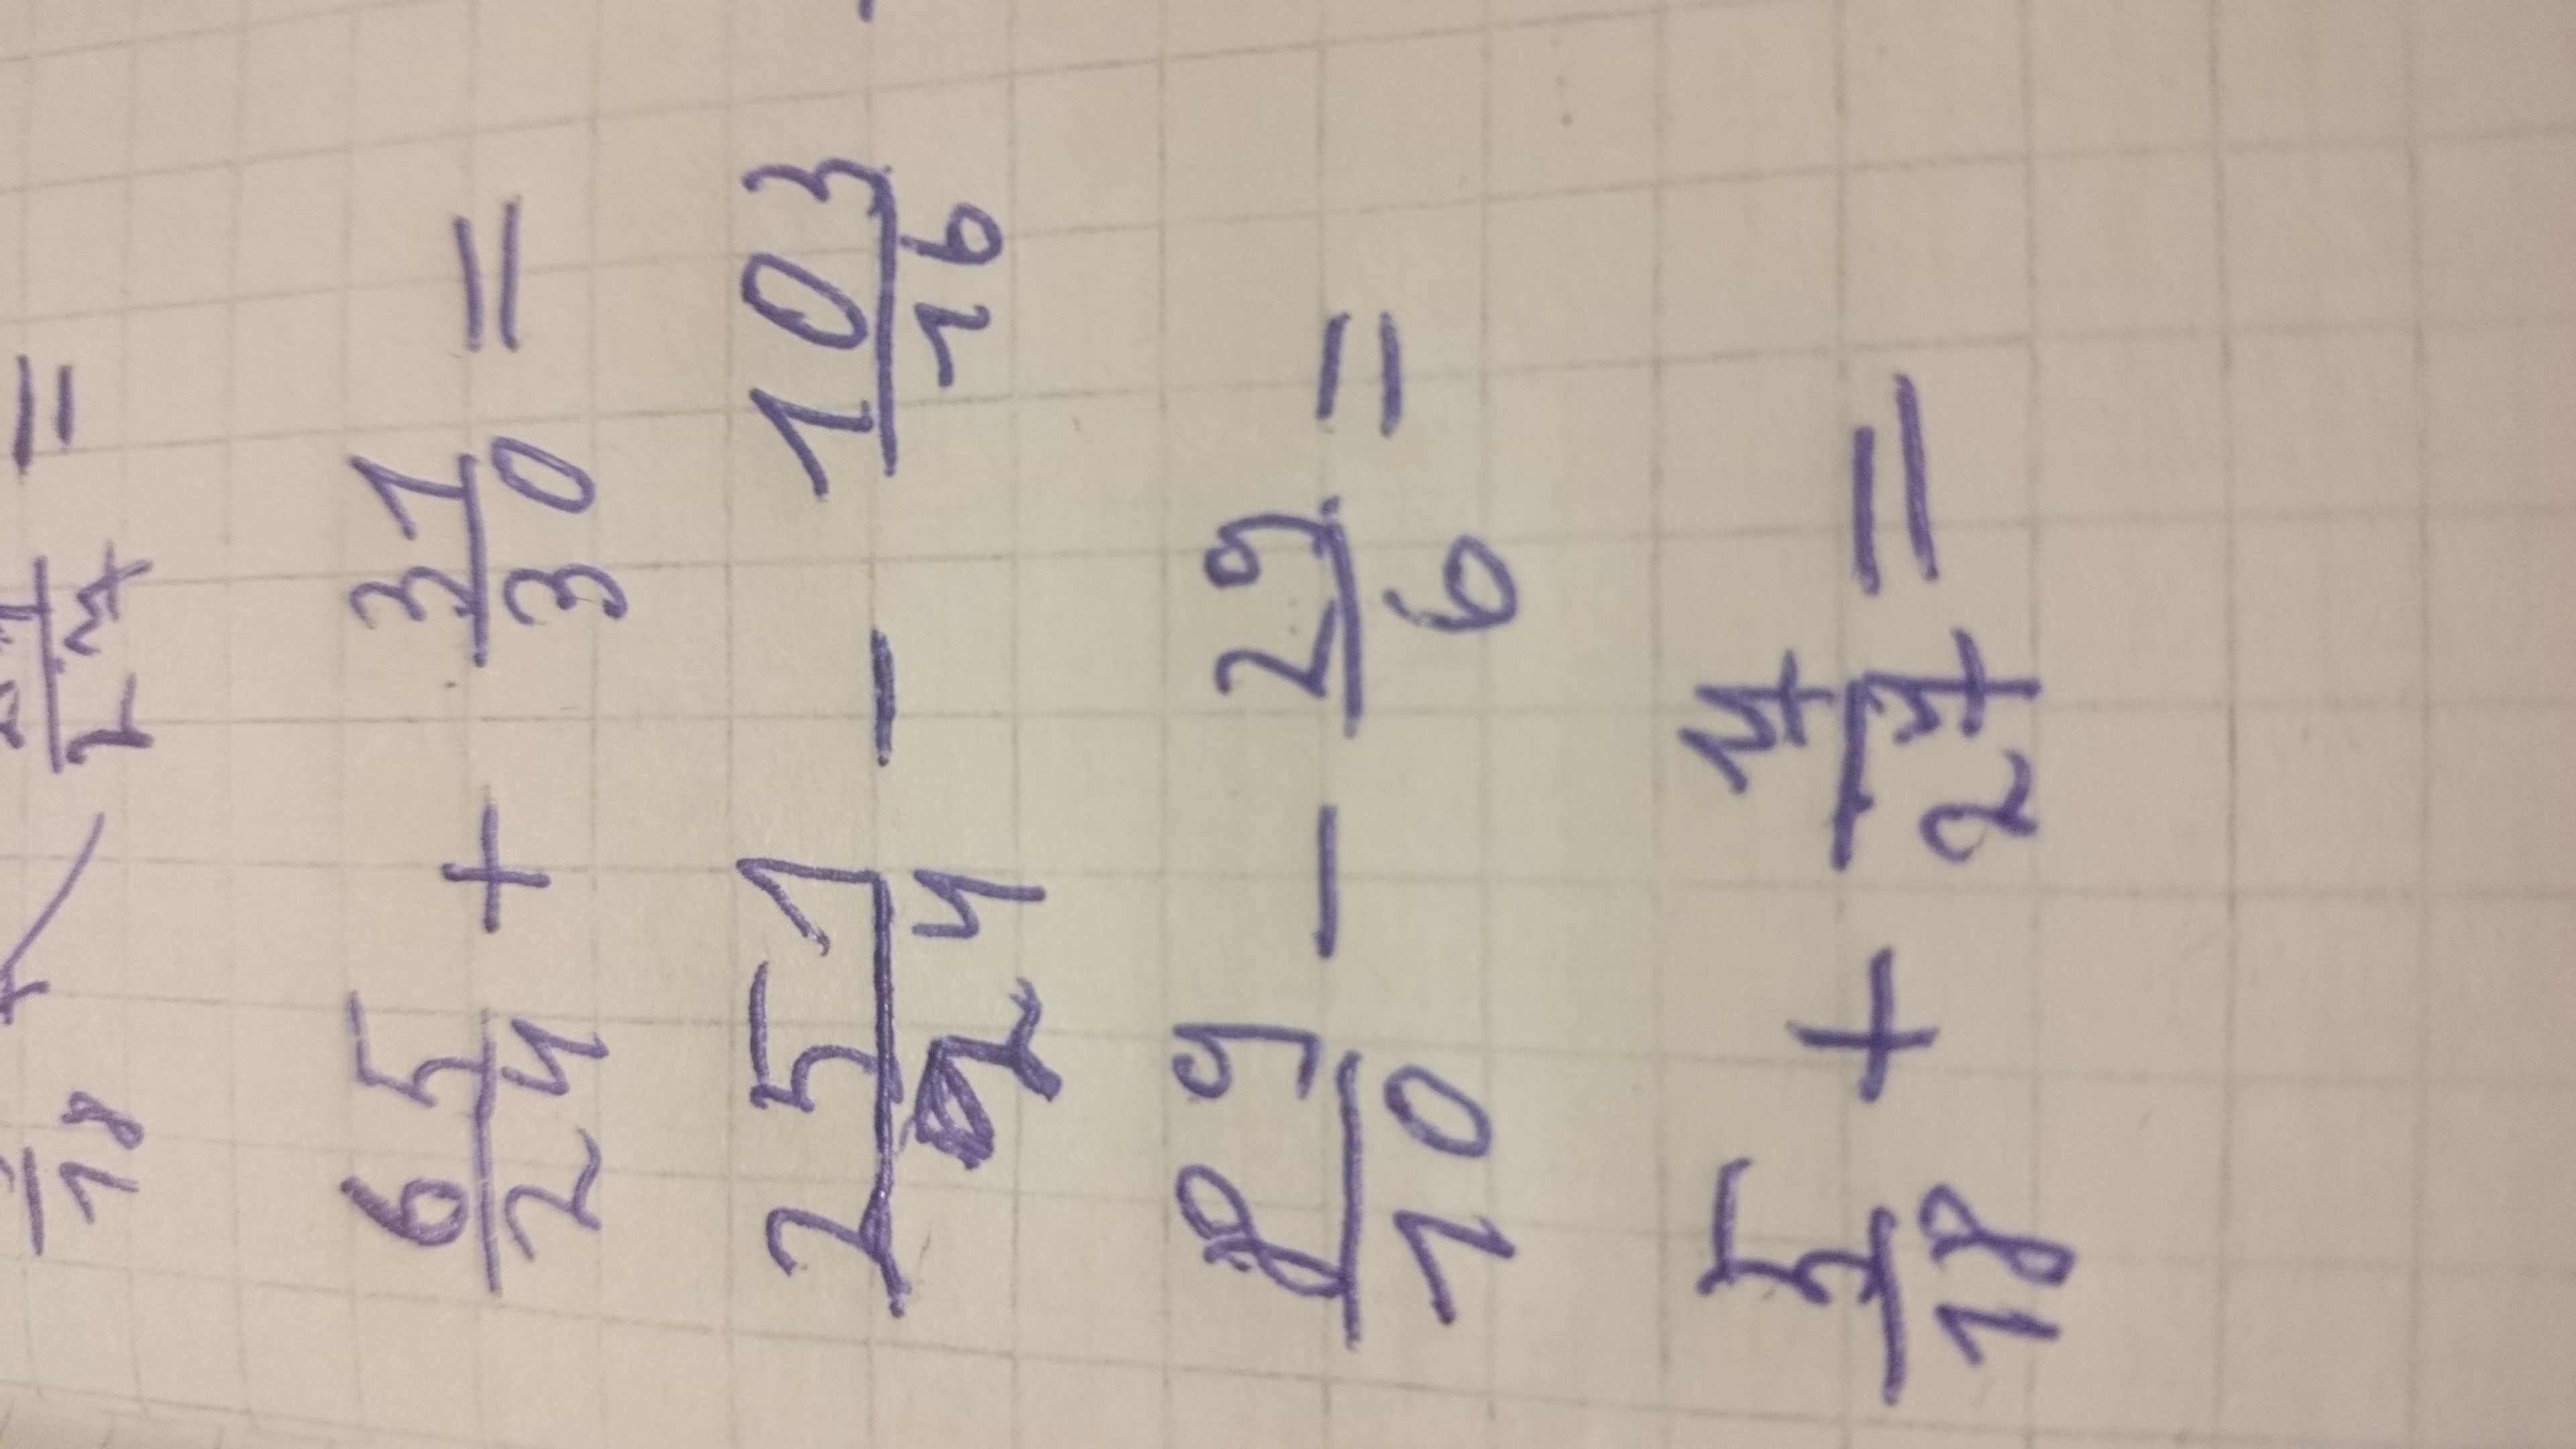 18 27 =
65/24 + 31/30 =
251/24 - 103/16
89/10 - 29/6 =
5/18 + 7/27 =